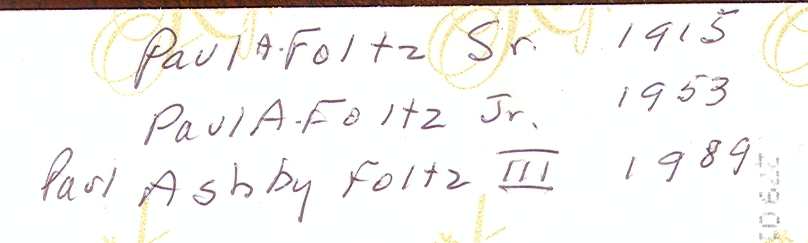 Paul A. Foltz Sr. 1915
Paul A. Foltz Jr. 1953
Paul Ashby Foltz III 1989